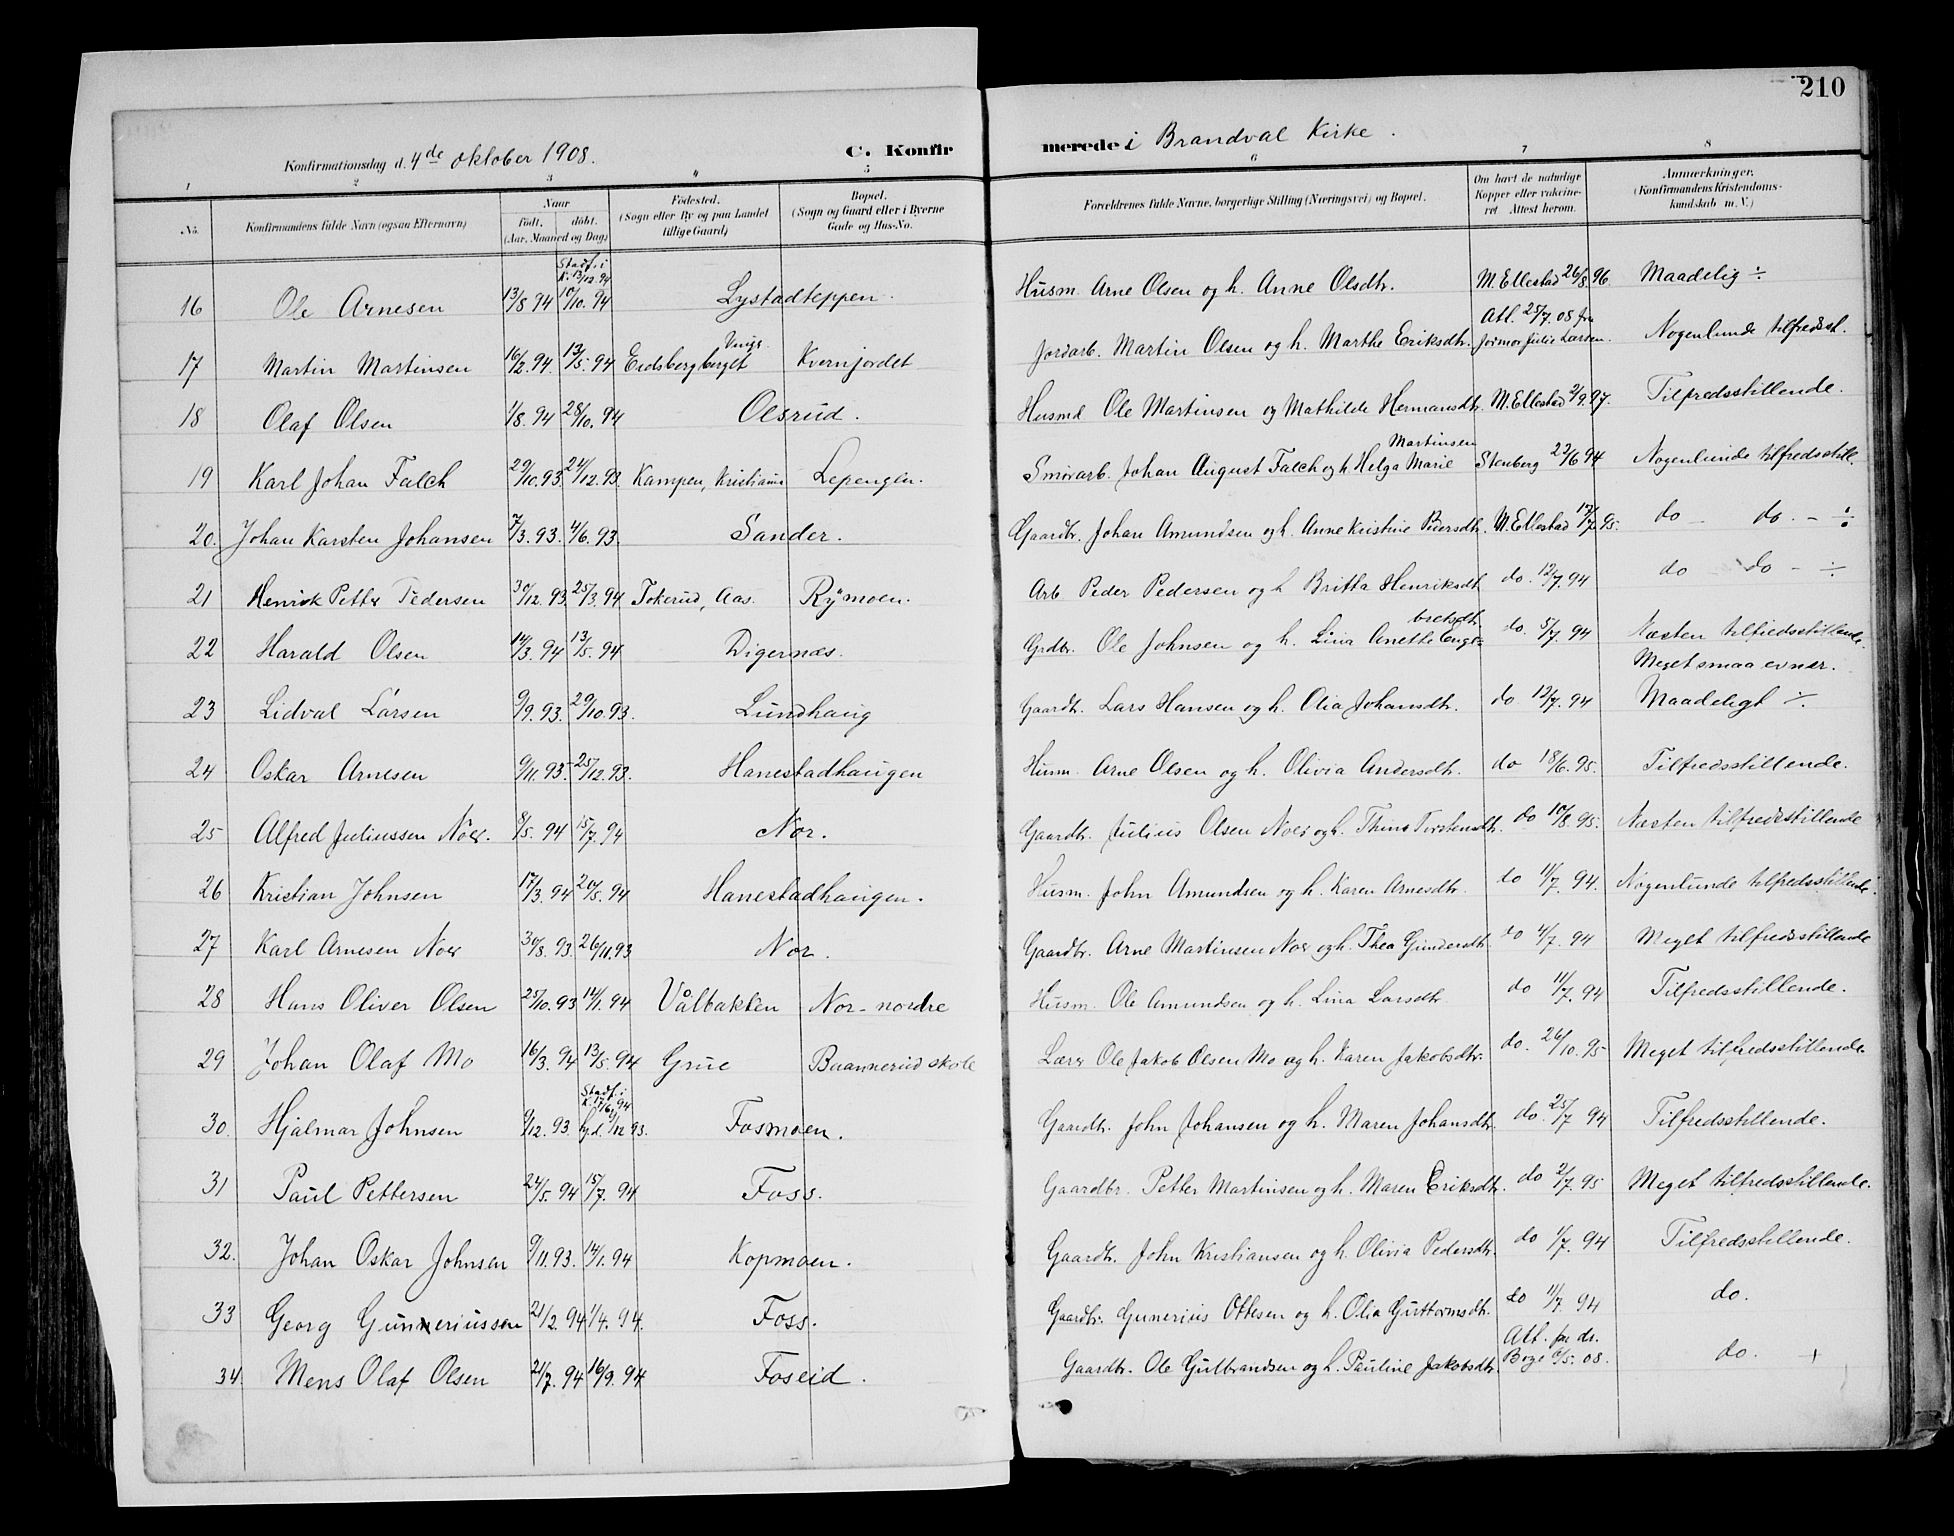 210
Konfirmationsdag d. 4de oktober 1908. C. Konfirmerede i Brandval Kirke.
1 2 3 4 5 6 7 8
No. Konfirmandens fulde Navn (ogsaa Efternavn) Naar født, døbt. (Aar, Maaned og Dag) Fødested. (Sogn eller By og paa Landet tillige Gaard) Bopæl. (Sogn og Gaard eller i Byerne Gade og Hus-No. Forældrenes fulde Navne, borgerlige Stilling (Næringsvei) og Bopæl. Om havt de naturlige Kopper eller vakcineret Attest herom. Anmærkninger. (Konfirmandens Kristendomskundskab m. V.)
16 Ole Arnesen 13/8 94 Stadf. i K. 13/12 94 10/10. 94 Lystadteppen. Husm. Arne Olsen og h. Anne Olsdtr. M. Ellestad 26/8. 96. Maadelig ÷
17 Martin Martinsen 16/2. 94. 13/5. 94 Eidsbergberget Vings. Kvernjordet Jordarb. Martin Olsen og h. Marthe Eriksdtr. Att. 25/7. 08 fra Jormor Julie Larsen. Nogenlunde tilfredsst.
18 Olaf Olsen 1/8. 94 28/10. 94 Olsrud. Husmd Ole Martinsen og Mathilde Hermansdtr. M. Ellestad 2/9. 97. Tilfredsstillende.
19 Karl Johan Falch 29/10. 93. 24/12. 93. Kampen, Kristiania Lepengen. Smørarb. Johan August Falch og h Helga Marie Martinsen Stenberg 22/6 94 Nogenlunde tilfredsstill.
20. Johan Karsten Johansen 7/3. 93. 4/6. 93. Sander. Gaardbr. Johan Amundsen og h. Anne Kristine Persdtr. M. Ellestad 17/7. 95. do - do. - ÷
21 Henrik Petter Pedersen 30/12. 93. 25/3. 94 Tokerud, Aas. Rymoen. Arb Peder Pedersen og h Britta Henriksdtr do. 12/7. 94 do do - ÷
22 Harald Olsen 14/3. 94 13/5. 94 Digernæs. Grdbr. Ole Johnsen og h. Lina Anette Engebretsdtr. do. 5/7. 94 Næsten tilfredsstillende. Meget smaa evner.
23 Lidval Larsen 9/9. 93. 29/10. 93. Lundhaug Gaardbr. Lars Hansen og h. Olia Johansdtr. do 12/7. 94 Maadeligt ÷.
24 Oskar Arnesen 9/11. 93. 25/12. 93. Hanestadhaugen Husm. Arne Olsen og h. Olivia Andersdtr. do 18/6. 95. Tilfredsstillende.
25 Alfred Juliussen Noer. 8/5. 94 15/7. 94 Nor. Gaardbr. Julius Olsen Noer og h. Thina Torstensdtr. do 10/8. 95. Næsten tilfredsstillende
26 Kristian Johnsen 17/3. 94 20/5. 94 Hanestadhaugen. Husm. John Amundsen og h. Karen Arnesdtr. do 11/7. 94. Nogenlunde tilfredsstillende.
27 Karl Arnesen Noer 30/8. 93. 26/11. 93 Nor. Gaardbr. Arne Martinsen Noer og h. Thea Gundersdtr. do 4/7. 94 Meget tilfredsstillende
28 Hans Oliver Olsen 25/10. 93 14/1. 94 Vålbakken Nor - nordre Husm. Ole Amundsen og h. Lina Larsdtr do 11/7. 94 Tilfredsstillende.
29 Johan Olaf Mo 16/3. 94 13/5. 94 Grue Baannerud skole Lærer Ole Jakob Olsen Mo og h. Karen Jakobsdtr. do. 26/10. 95 Meget tilfredsstillende.
30. Hjalmar Johnsen 9/12. 93. Stadf. i K. 17/6 94 hj.d. 12 93. Fosmoen. Gaardbr. John Johansen og h. Maren Johansdtr. do. 25/7 94 Tilfredsstillende.
31 Paul Pettersen 24/5. 94 15/7. 94 Foss. Gaardbr. Petter Martinsen og h. Maren Eriksdtr. do 2/7. 95 Meget tilfredsstillende.
32. Johan Oskar Johnsen 9/11. 93. 14/1. 94 Kopmoen. Gaardbr. John Kristiansen og h. Olivia Pedersdtr. do 1/7. 94 Tilfredsstillende.
33 Georg Gunneriussen 21/2. 94 1/4. 94. Foss. Gaardbr. Gunerius Ottesen og h. Olia Guttormsdtr. do 11/7. 94 do.
34 Mens Olaf Olsen 21/7. 94 16/9. 94 Foseid. Gaardbr. Ole Gulbrandsen og h. Pauline Jakobsdtr. Att. fra dr. Boye 6/5. 08. do. +